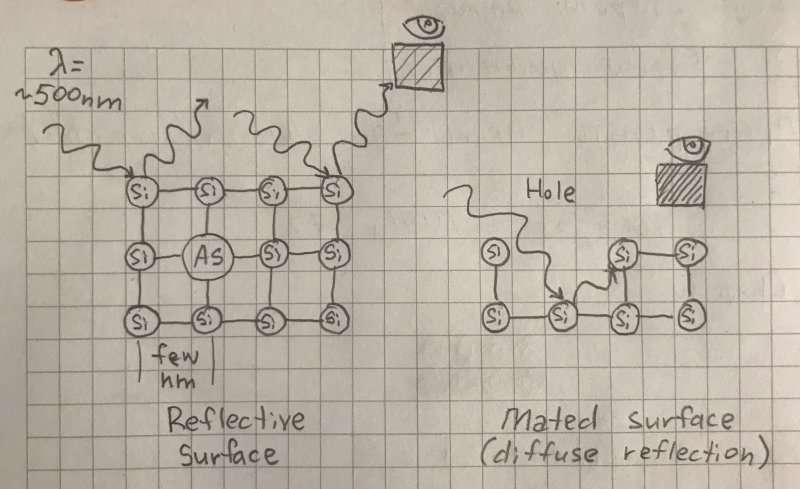 λ=
~500nm
Si Si Si Si
Si AS Si Si
Si Si Si Si
few
nm
Reflective
Surface
Hole
Si Si Si
Si Si Si Si
Mated surface
(diffuse reflection)